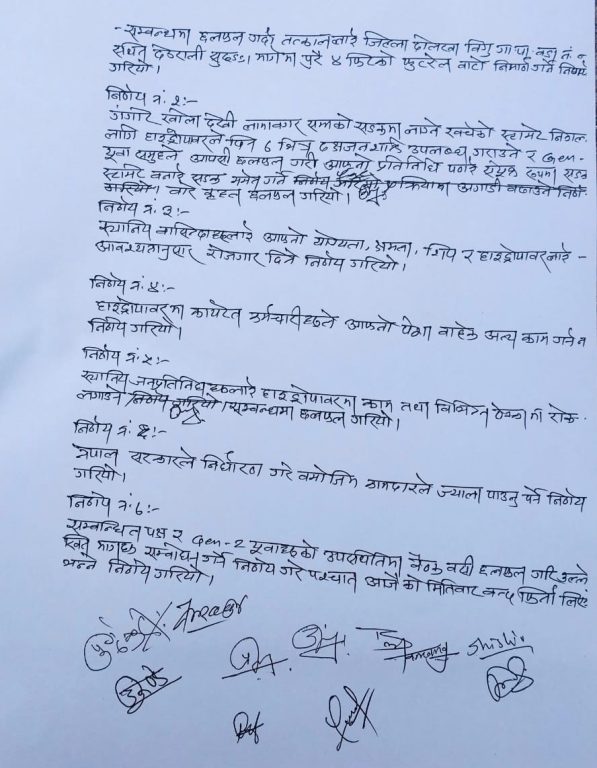 - सम्बन्धमा छलफल गर्दा तत्कालैलाई जिल्ला दोलखा विगु गा.पा. वडा नं.
स्थित देउराली मार्गमा पुरै ४ फिटको फुटरेल बाटो निर्माण गर्ने निर्णय
गरियो।
निर्णय नं. २:-
खोला देखी लामाबगर सम्मको सडकमा लाग्ने
लागि हाइड्रोपावरले दिन ७ भित्र दक्षजनशक्ति उपलब्ध गराउने र Gen-
यूवा समुहले आपसी छलफल गरी आफ्नो प्रतिनिधि पठाई संयुक्त रुपमा सडक
बनाई सडक मर्मत गर्ने प्रक्रियामा अगाडी बढाउने निर्णय
गरियो। बारे छलफल गरियो।
निर्णय नं. ३:-
स्थानिय बासिन्दाहरुलाई आफ्नो योग्यता, क्षमता, शिप र हाइड्रोपावरलाई -
आवश्यतानुसार रोजगार दिने निर्णय गरियो।
निर्णय नं. ४:-
हाइड्रोपावरमा कार्यरत कर्मचारीहरुले आफ्नो पेशा बाहेक अन्य काम गर्न न
निर्णय गरियो।
निर्णय नं. ५:-
स्थानिय जनप्रतिनिधिहरुलाई हाइड्रोपावरमा काम तथा विभिन्न ठेक्कामा रोक
लगाउने निर्णय गरियो। सम्बन्धमा छलफल गरियो।
निर्णय नं. ६:-
नेपाल सरकारले निर्धारण गरे बमोजिम कामदारले ज्याला पाउनु पर्ने निर्णय
गरियो।
निर्णय नं. ७:-
सम्बन्धित पक्ष र Gen-Z यूवाहरुको उपस्थितिमा बैठक बसी छलफल गरि उनले
माग सम्बोधन गर्ने निर्णय गरे पश्चात आजै को मितिबाट बन्द फिर्ता लिए
भन्ने निर्णय गरियो।